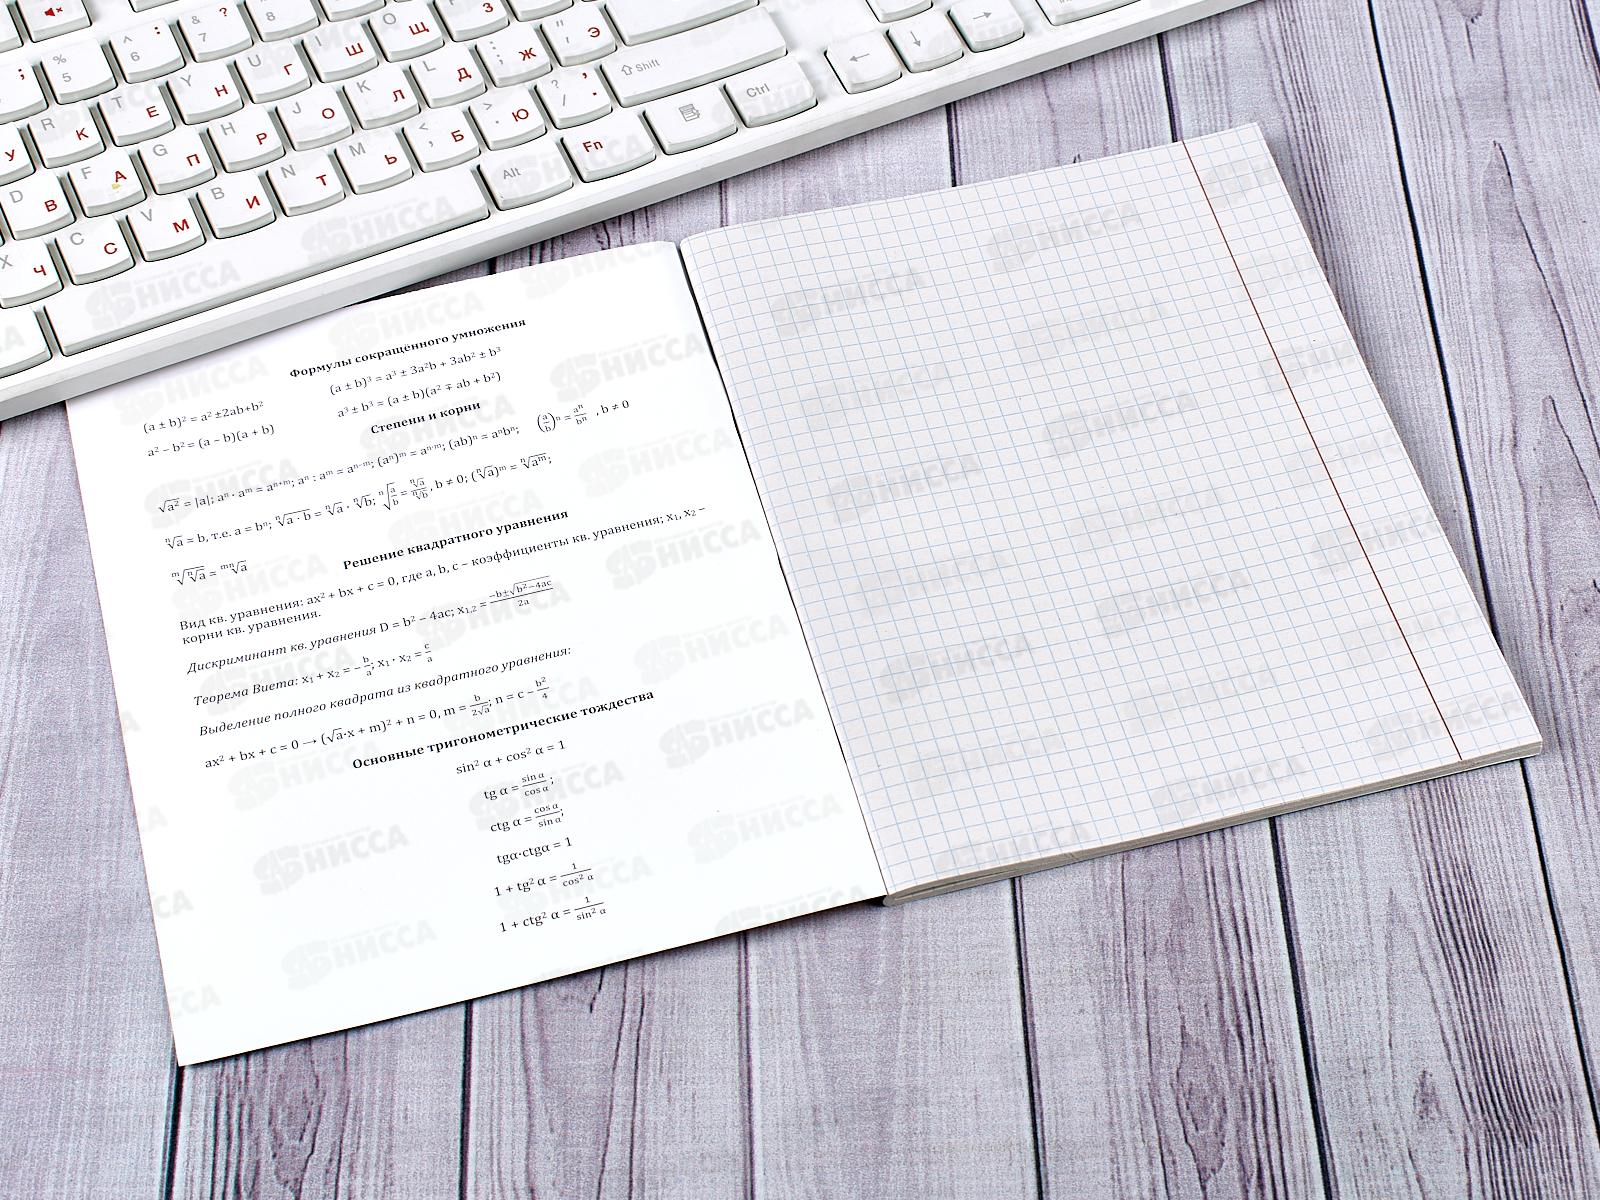 Формулы сокращённого умножения
(a ± b)² = a² ±2ab+b²
(a ± b)³ = a³ ± 3a²b + 3ab² ± b³
a² − b² = (a − b)(a + b)
a³ ± b³ = (a ± b)(a² ∓ ab + b²)
Степени и корни
√a² = |a|; aⁿ · aᵐ = aⁿ⁺ᵐ; aⁿ : aᵐ = aⁿ⁻ᵐ; (aⁿ)ᵐ = aⁿ·ᵐ; (ab)ⁿ = aⁿbⁿ; (a/b)ⁿ = aⁿ/bⁿ , b ≠ 0
ⁿ√a = b, т.е. a = bⁿ; ⁿ√(a · b) = ⁿ√a · ⁿ√b; ⁿ√(a/b) = ⁿ√a/ⁿ√b, b ≠ 0; (ⁿ√a)ᵐ = ⁿ√aᵐ;
ᵐ√(ⁿ√a) = ᵐⁿ√a
Решение квадратного уравнения
Вид кв. уравнения: ax² + bx + c = 0, где a, b, c – коэффициенты кв. уравнения; x₁, x₂ –
корни кв. уравнения.
Дискриминант кв. уравнения D = b² − 4ac; x₁,₂ = (−b±√(b²−4ac))/2a
Теорема Виета: x₁ + x₂ = − b/a; x₁ · x₂ = c/a
Выделение полного квадрата из квадратного уравнения:
ax² + bx + c = 0 → (√a·x + m)² + n = 0, m = b/(2√a); n = c − b²/4
Основные тригонометрические тождества
sin² α + cos² α = 1
tg α = sin α/cos α;
ctg α = cos α/sin α;
tgα·ctgα = 1
1 + tg² α = 1/cos² α
1 + ctg² α = 1/sin² α
% 5
^ : 6
& ? 7
8
З
R К
T Е
Y Н
U Г
I Ш
O Щ
: ; Ж
" ' Э
Shift
D В
F А
G П
H Р
J О
K Л
L Д
X Ч
C С
V М
B И
N Т
M Ь
< , Б
> . Ю
? / , .
Alt
Fn
Ctrl
НИССА